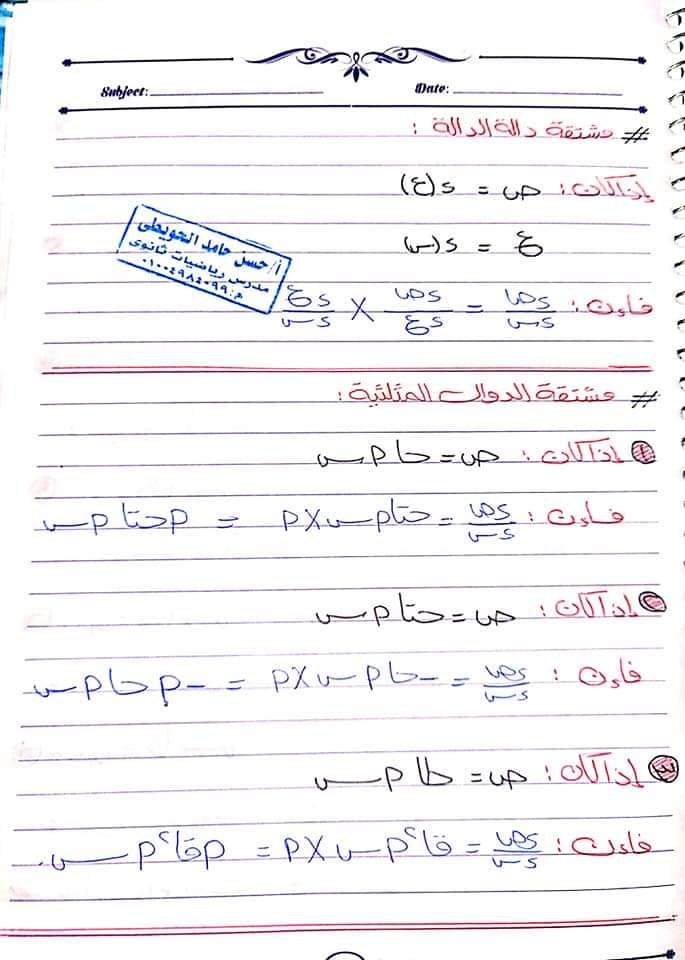 Subject: Date:
# مشتقة دالة الدالة :
إذا كان : ص = د(ع)
ع = د(س)
أ/ حسن حامد الحويطى
مدرس رياضيات ثانوى
م: ٠١٠٠٤٩٨٤٠٩٩
فإن : دص/دس = دص/دع × دع/دس
# مشتقة الدوال المثلثية :
١ إذا كان : ص = حا م س
فإن : دص/دس = حتا م س × م = م حتا م س
٢ إذا كان : ص = حتا م س
فإن : دص/دس = -حا م س × م = -م حا م س
٣ إذا كان : ص = طا م س
فإن : دص/دس = قا٢ م س × م = م قا٢ م س.